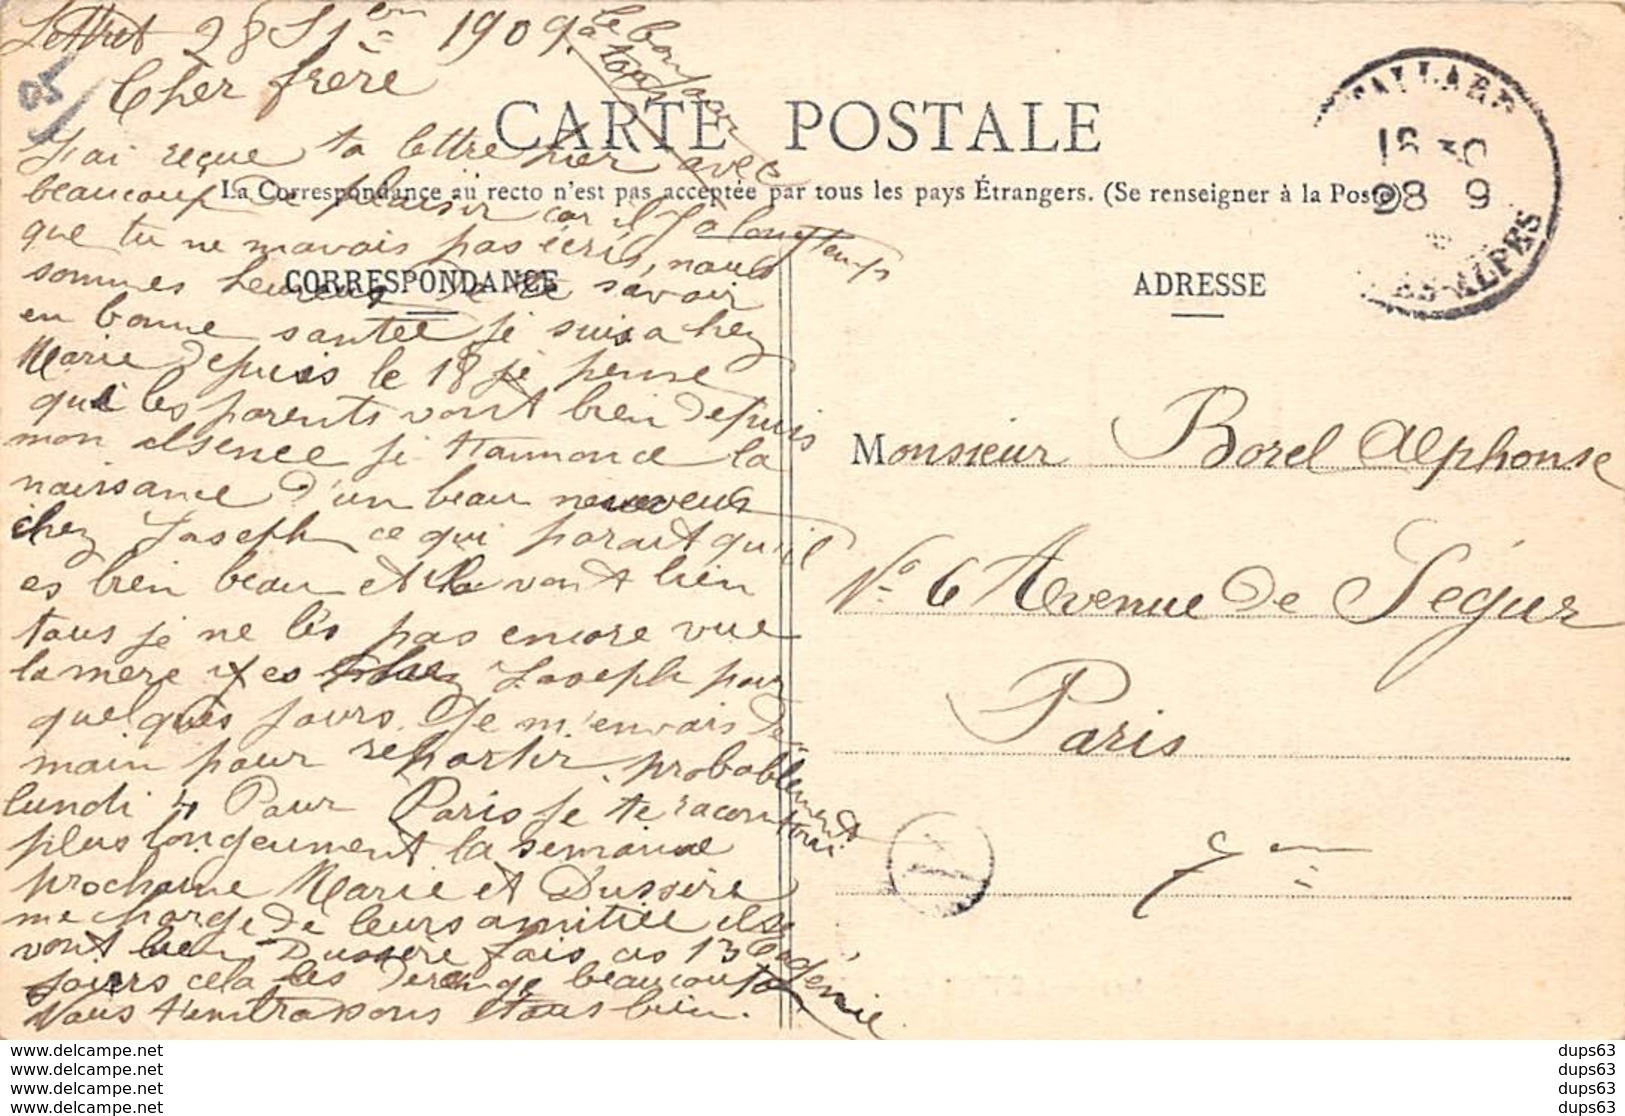 Lettret 28 Sbre 1909.
le bonjour
à tous
Cher frere
05
CARTE POSTALE
J'ai reçue ta lettre hier avec
La Correspondance au recto n'est pas acceptée par tous les pays Étrangers. (Se renseigner à la Poste)
beaucoup de plaisir car il y a longtemps
que tu ne mavais pas écris, nous
CORRESPONDANCE
sommes heureux de te savoir
en bonne santée je suis a chez
Marie depuis le 18 je pense
que les parents vont bien depuis
mon absence je t'annonce la
naissance d'un beau neveux
chez Joseph ce qui parait qu'il
es bien beau et vont bien
tous je ne l'és pas encore vue
la mère y es chez Joseph pour
quelques jours. Je m'envais de
main pour repartir probablement
lundi 4 Pour Paris je te racontrai
plus longeument la semaine
prochaine Marie et Dussère
me charge de leurs amitiée else
vont bien Dussère fais cis 13
jours cela les derange beaucoup
Nous t'embrassons tous bien.
Eugénie
ADRESSE
TALLARD
16 30
28 9
HTES-ALPES
Monsieur Borel Alphonse
No 6 Avenue de Ségur
Paris
7em
www.delcampe.net
www.delcampe.net
www.delcampe.net
www.delcampe.net
dups63
dups63
dups63
dups63